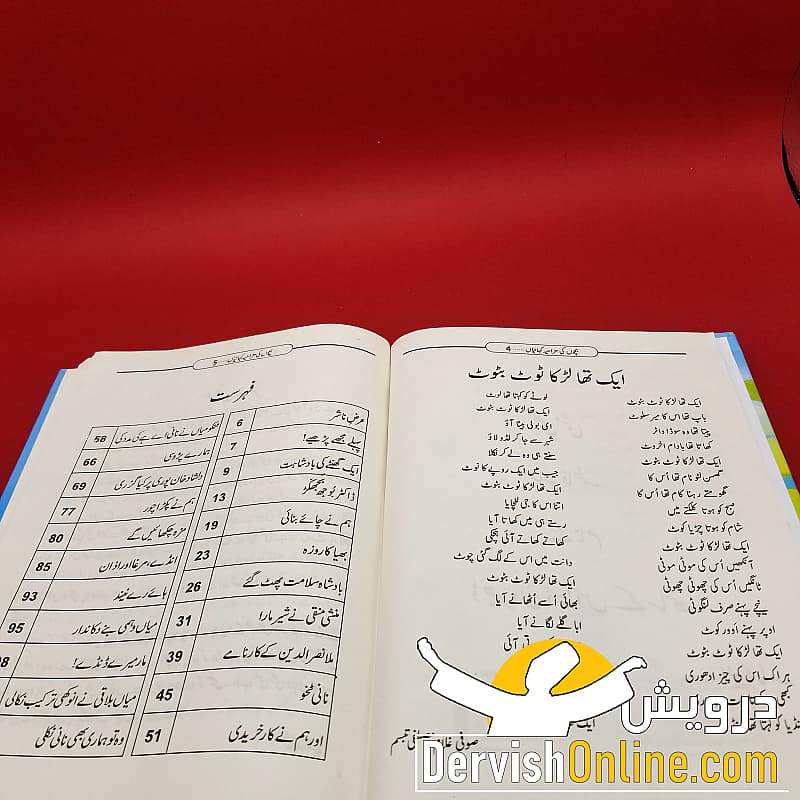 بچوں کی مزاحیہ کہانیاں ...... 4
ایک تھا لڑکا ٹوٹ بٹوٹ
ایک تھا لڑکا ٹوٹ بٹوٹ
باپ تھا اس کا میر سلوٹ
پیتا تھا وہ سوڈا واٹر
کھاتا تھا بادام اخروٹ
ایک تھا لڑکا ٹوٹ بٹوٹ
نام تھا اُس کا
گھومتے رہنا کام تھا اُس کا
صبح کو ہوتا کلکتے میں
شام کو ہوتا چڑیا کوٹ
ایک تھا لڑکا ٹوٹ بٹوٹ
آنکھیں اُس کی موٹی موٹی
ٹانگیں اُس کی چھوٹی چھوٹی
نیچے پہنے صرف لنگوٹی
اوپر پہنے اوور کوٹ
ایک تھا لڑکا ٹوٹ بٹوٹ
ہر اک اس کی چیز ادھوری
کبھی
کو کہتا تھا
لوٹے کو کہتا تھا لوٹ
ایک تھا لڑکا ٹوٹ بٹوٹ
امی بولی بیٹا آؤ
شہر سے جا کر لڈو لاؤ
سنتے ہی وہ لے کر نکلا
جیب میں ایک روپے کا نوٹ
ایک تھا لڑکا ٹوٹ بٹوٹ
اتنا اس کا جی للچایا
رستے ہی میں کھاتا آیا
کھاتے کھاتے آئی ہچکی
دانت میں اس کے لگ گئی چوٹ
ایک تھا لڑکا ٹوٹ بٹوٹ
بھائی اُسے اُٹھانے آیا
ابا گلے لگانے آیا
آئی
ایک
صوفی غلام مصطفیٰ تبسم
بچوں کی مزاحیہ کہانیاں ...... 5
فہرست
عرض ناشر 6
پہلے مجھے پڑھیے! 7
ایک گھنٹے کی بادشاہت 9
ڈاکٹر بوجھ بجھکڑ 13
ہم نے چائے بنائی 19
بھیا کا روزہ 23
بادشاہ سلامت پھٹ گئے 26
منشی منقی نے شیر مارا 31
ملا نصر الدین کے کارنامے 39
نانی ٹخو 45
اور ہم نے کار خریدی 51
میاں نے نانی اے بے کی مدد کی 58
ہمارے پڑوسی 66
دلشاد خان پوری پر کیا گزری 69
ہم نے پکڑا چور 77
مزہ چکھائیں گے 80
انڈے، مرغا اور اذان 85
ہائے رے نیند 93
میاں وہمی بنے دکاندار 95
مار میرے ڈنڈے!
میاں بلاقی نے انوکھی ترکیب نکالی
وہ تو ہماری بھی نانی نکلی
درویش
DervishOnline.com